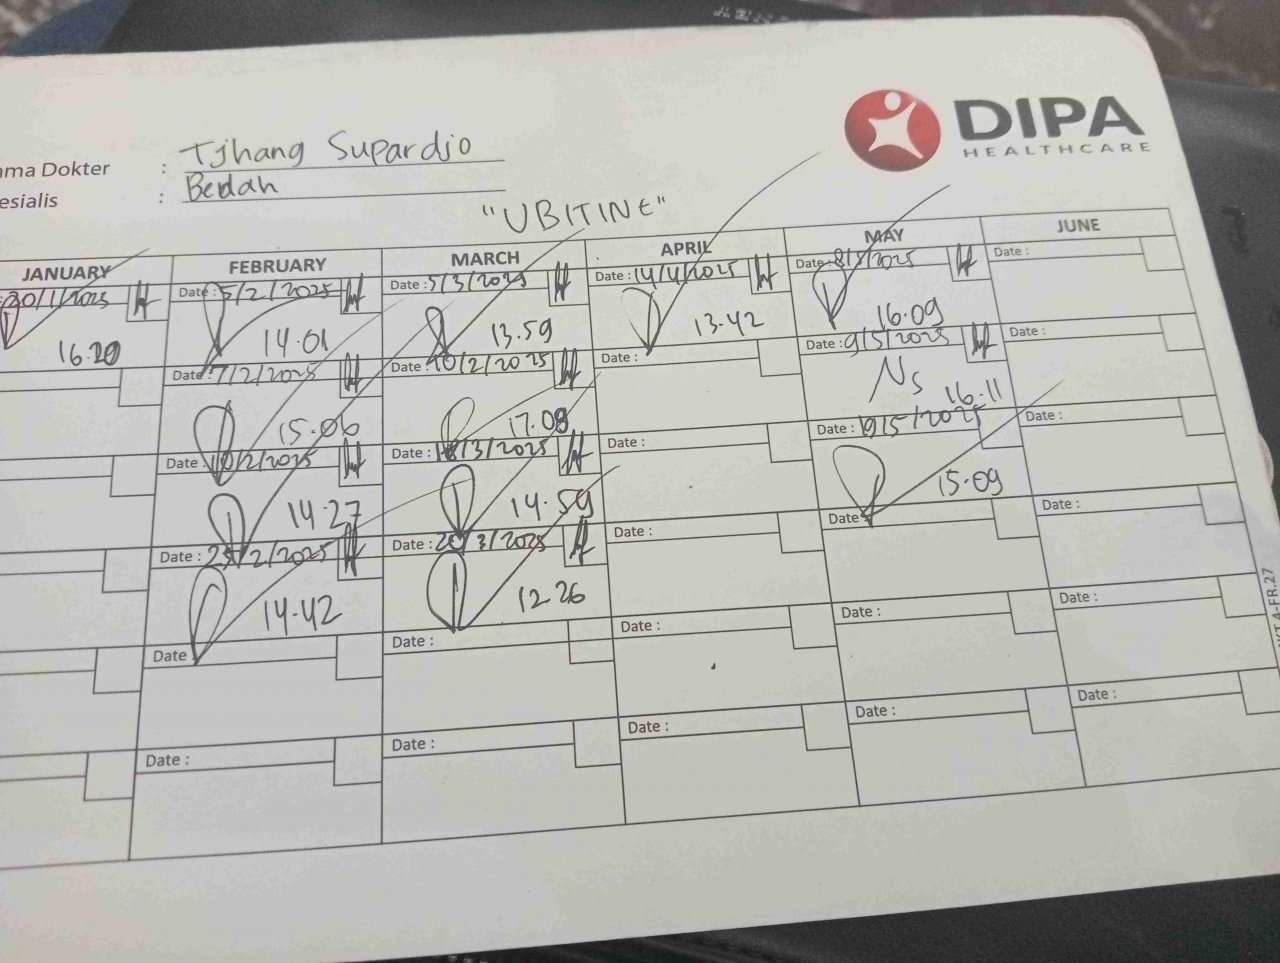 DIPA
HEALTHCARE
ama Dokter : Tjhang Supardjo
esialis : Bedah
"UBITINE"
JANUARY FEBRUARY MARCH APRIL MAY JUNE
30/1/2025 Date : 5/2/2025 Date : 5/3/2025 Date : 14/4/2025 Date : 8/5/2025 Date :
16.20 14.01 13.59 13.42 16.09
Date : 7/2/2025 Date : 10/2/2025 Date : Date : 9/5/2025 Date :
15.06 17.08 Ns 16.11
Date : 10/2/2025 Date : 18/3/2025 Date : Date : 19/5/2025 Date :
14.27 14.59 15.09
Date : 25/2/2025 Date : 20/3/2025 Date : Date : Date :
14.42 12.26
Date : Date : Date : Date : Date :
Date : Date : Date : Date : Date :
4-FR.27